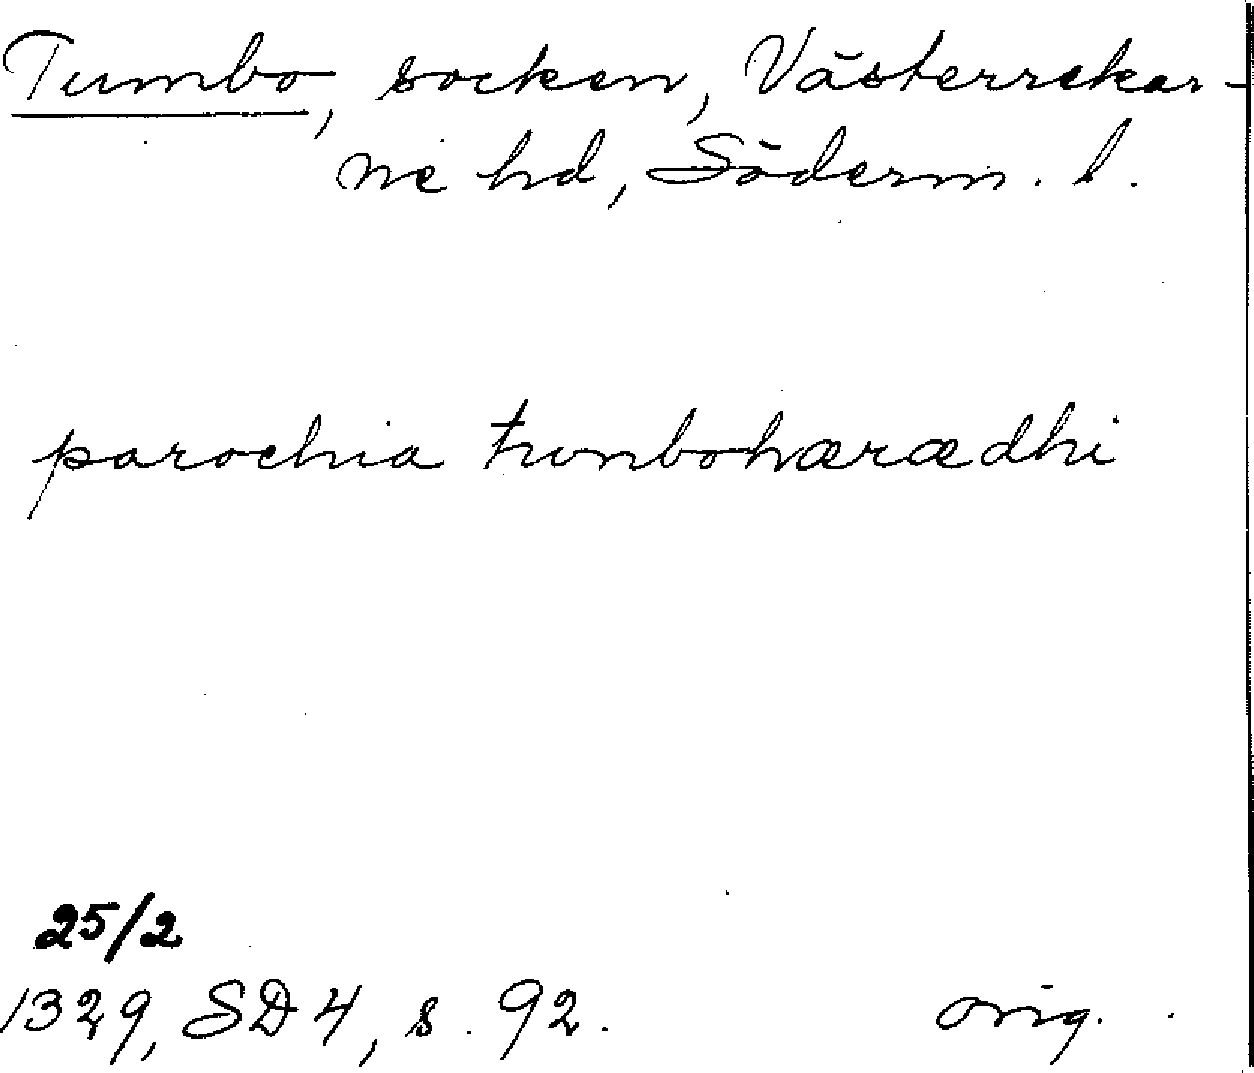 Tumbo, socken, Västerrekar-
ne hd, Söderm. l.
parochia tumbohærædhi
25/2
1329, SD 4, s. 92. orig.